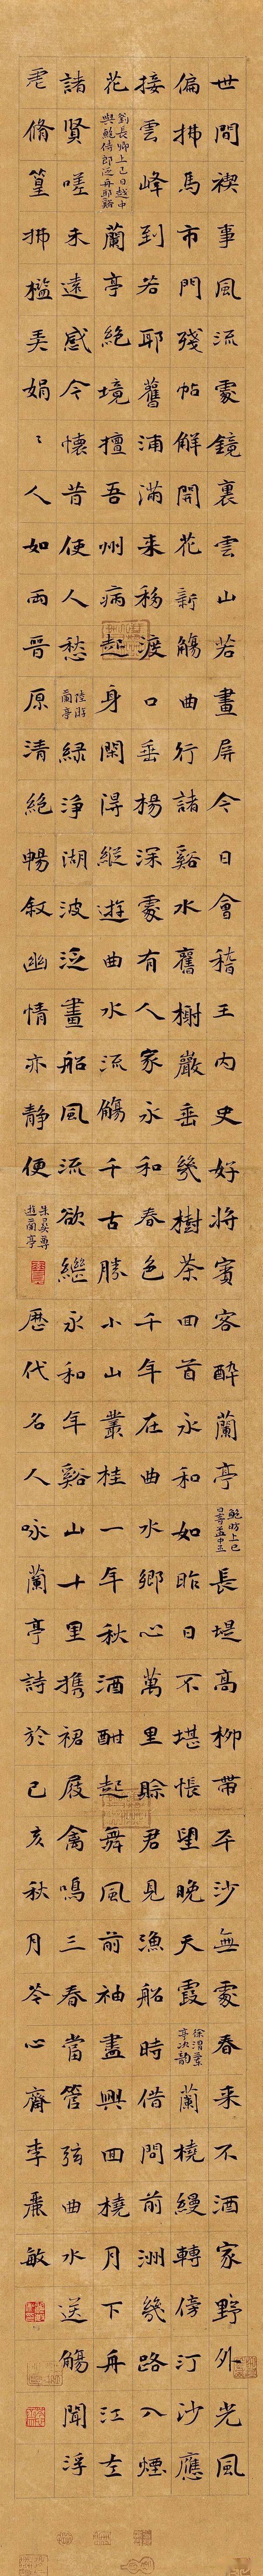 世間禊事風流處鏡裏雲山若畫屏今日會稽王内史好將賓客醉蘭亭
鮑防上巳
日寄孟中丞
長堤高柳帶平沙無處春來不酒家野外光風
偏拂馬市門殘帖解開花新觴曲行諸谿水舊榭巖垂幾樹茶回首永和如昨日不堪悵望晚天霞
徐渭蘭
亭次韵
蘭橈縵轉傍汀沙應
接雲峰到若耶舊浦滿來移渡口垂楊深處有人家永和春色千年在曲水鄉心萬里賒君見漁船時借問前洲幾路入煙
花
劉長卿上巳日越中
與鮑侍郎泛舟耶谿
蘭亭絕境擅吾州病起身閑得縱遊曲水流觴千古勝小山叢桂一年秋酒酣起舞風前袖盡興回橈月下舟江左
諸賢嗟未遠感今懷昔使人愁
陸游
蘭亭
綠淨湖波泛畫船風流欲繼永和年谿山十里攜裙屐禽鳴三春當管弦曲水送觴聞浮
脩篁拂檻美娟〻人如兩晉原清絕暢敘幽情亦靜便
朱彝尊
遊蘭亭
歷代名人咏蘭亭詩於己亥秋月苓心齋李麗敏